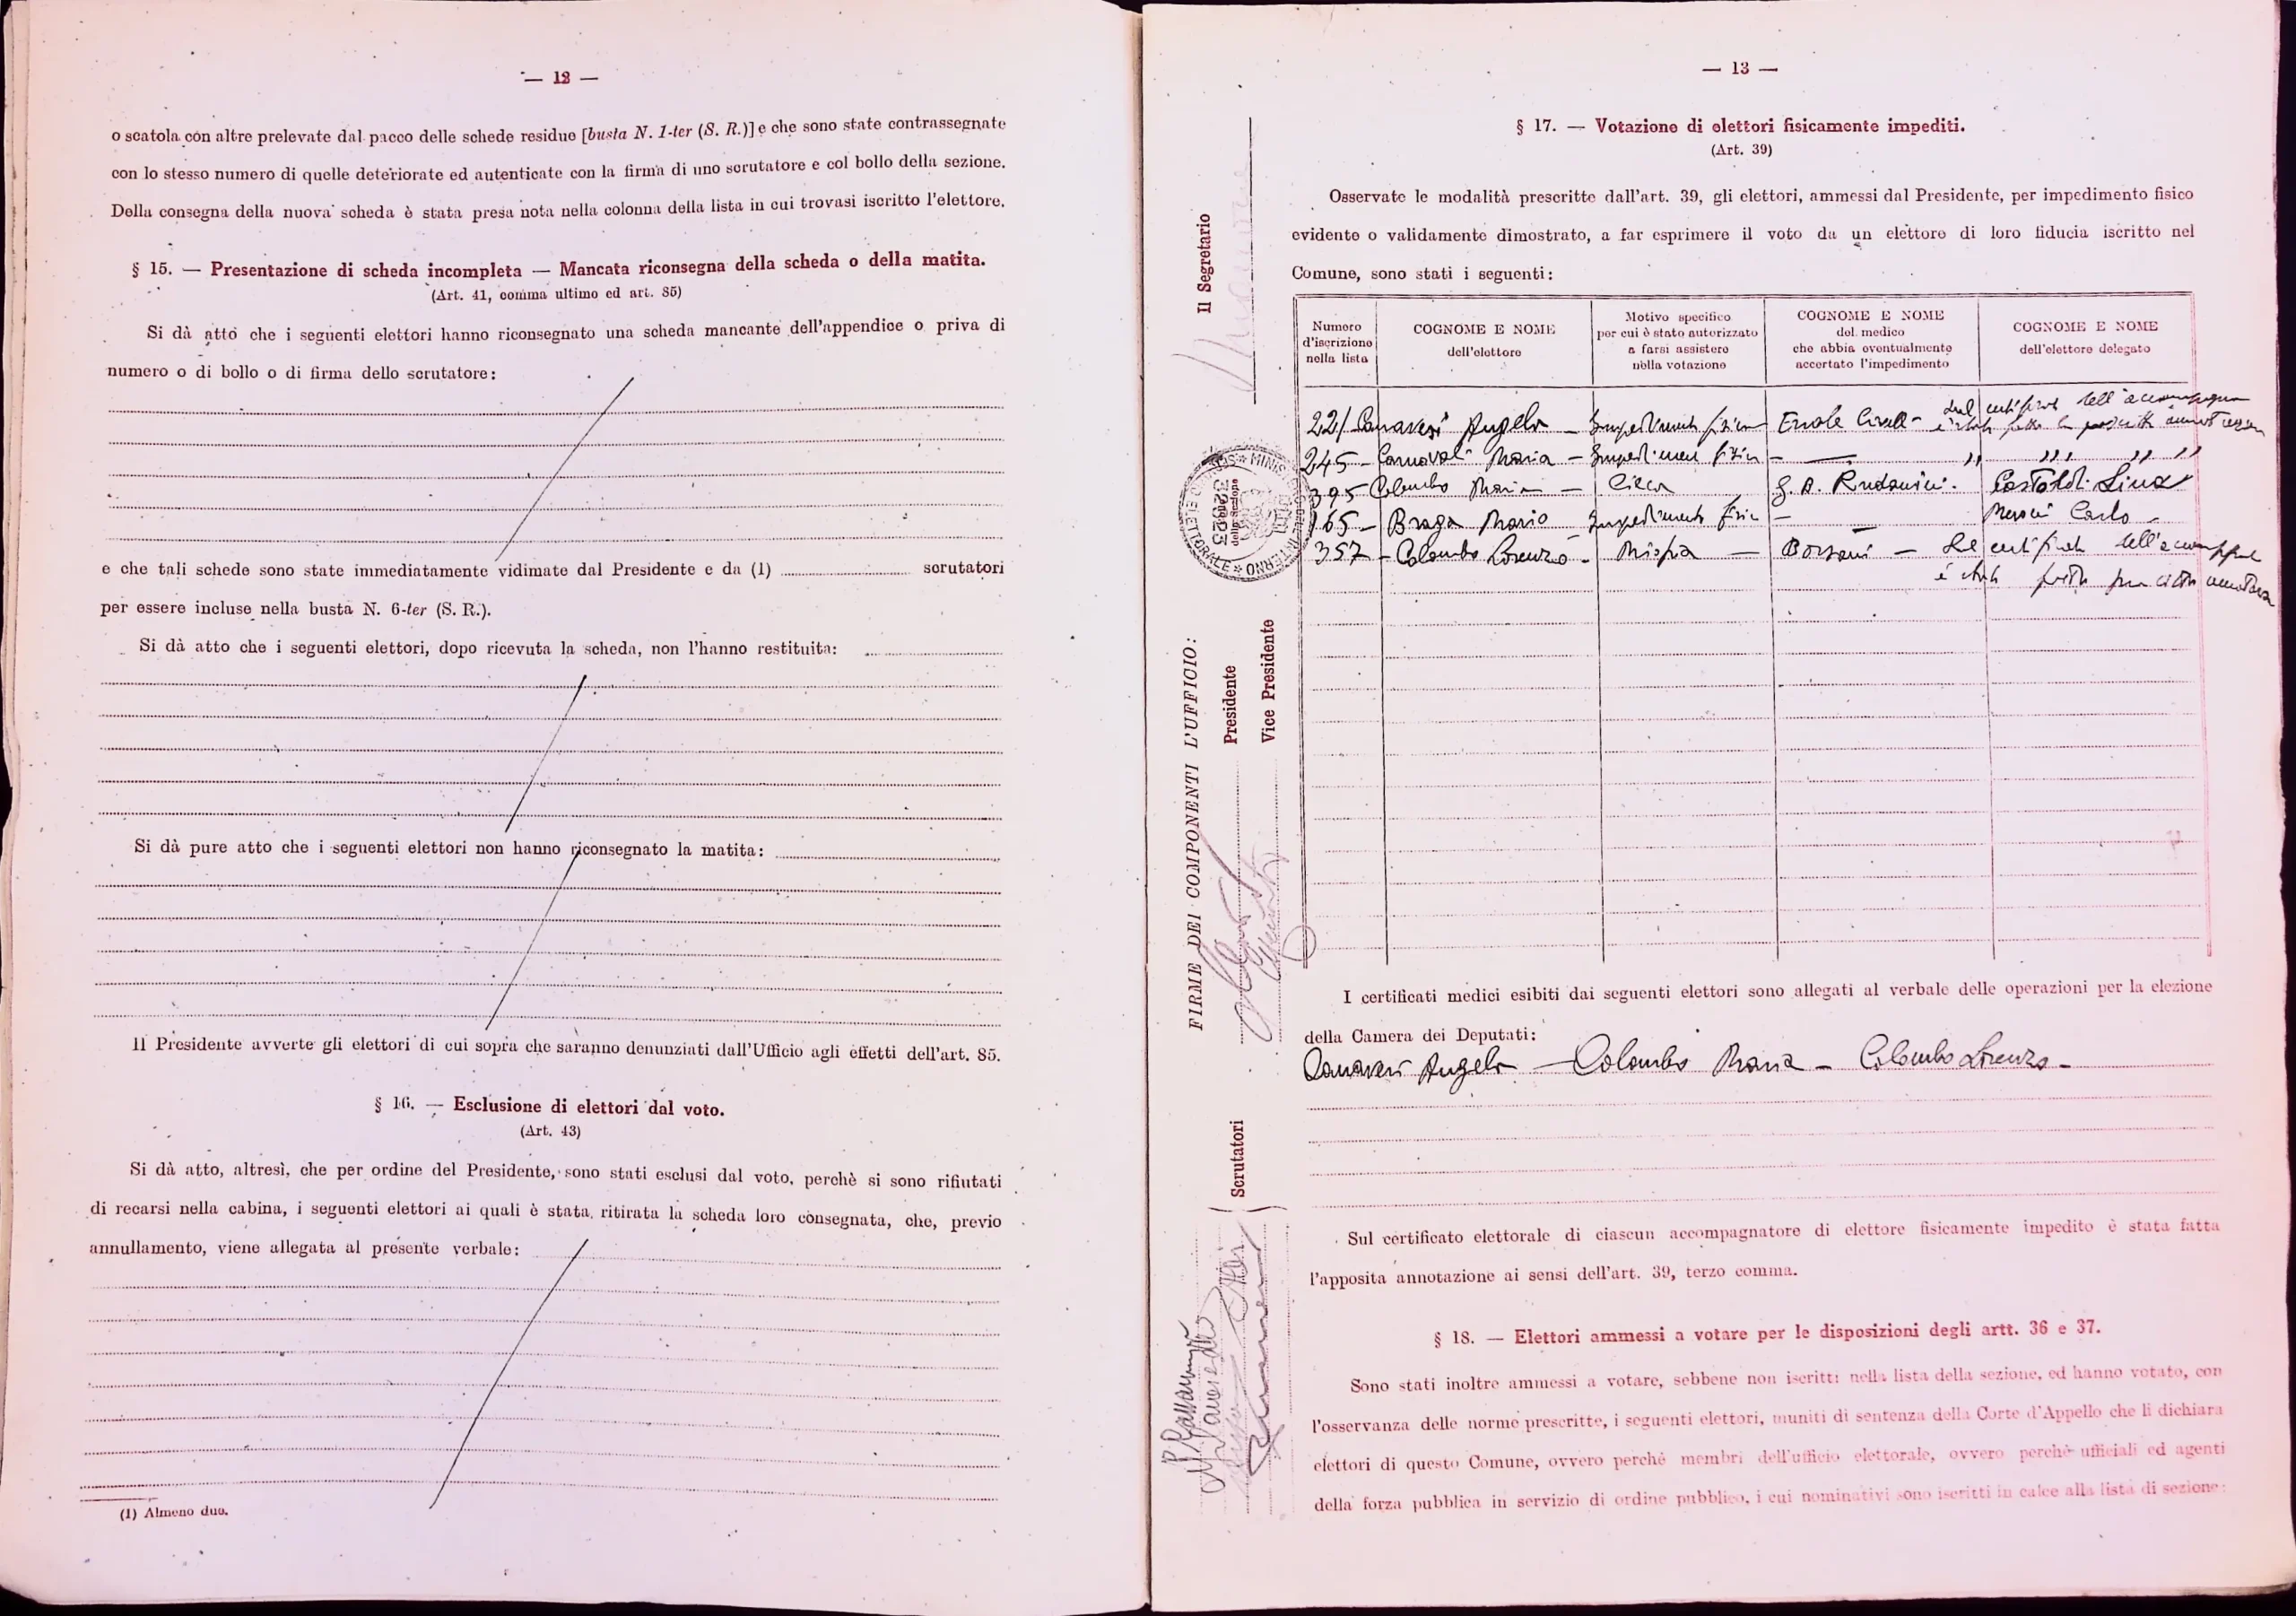 — 12 —
o scatola con altre prelevate dal pacco delle schede residue [busta N. 1-ter (S. R.)] e che sono state contrassegnate
con lo stesso numero di quelle deteriorate ed autenticate con la firma di uno scrutatore e col bollo della sezione.
Della consegna della nuova scheda è stata presa nota nella colonna della lista in cui trovasi iscritto l'elettore.
§ 15. — Presentazione di scheda incompleta — Mancata riconsegna della scheda o della matita.
(Art. 41, comma ultimo ed art. 85)
Si dà atto che i seguenti elettori hanno riconsegnato una scheda mancante dell'appendice o priva di
numero o di bollo o di firma dello scrutatore:
e che tali schede sono state immediatamente vidimate dal Presidente e da (1) scrutatori
per essere incluse nella busta N. 6-ter (S. R.).
Si dà atto che i seguenti elettori, dopo ricevuta la scheda, non l'hanno restituita:
Si dà pure atto che i seguenti elettori non hanno riconsegnato la matita:
Il Presidente avverte gli elettori di cui sopra che saranno denunziati dall'Ufficio agli effetti dell'art. 85.
§ 16. — Esclusione di elettori dal voto.
(Art. 43)
Si dà atto, altresì, che per ordine del Presidente, sono stati esclusi dal voto, perchè si sono rifiutati
di recarsi nella cabina, i seguenti elettori ai quali è stata ritirata la scheda loro consegnata, che, previo
annullamento, viene allegata al presente verbale:
(1) Almeno due.
— 13 —
§ 17. — Votazione di elettori fisicamente impediti.
(Art. 39)
Osservate le modalità prescritte dall'art. 39, gli elettori, ammessi dal Presidente, per impedimento fisico
evidente o validamente dimostrato, a far esprimere il voto da un elettore di loro fiducia iscritto nel
Comune, sono stati i seguenti:
Numero d'iscrizione nella lista
COGNOME E NOME dell'elettore
Motivo specifico per cui è stato autorizzato a farsi assistere nella votazione
COGNOME E NOME del medico che abbia eventualmente accertato l'impedimento
COGNOME E NOME dell'elettore delegato
221 Canavesi Angelo —
245 — Carnovali Maria —
395 Colombo Maria — Cieca Castoldi Lina
165 — Braga Mario Carlo —
357 — Colombo Lorenzo — Miopia — Borsani —
I certificati medici esibiti dai seguenti elettori sono allegati al verbale delle operazioni per la elezione
della Camera dei Deputati:
Canavesi Angelo — Colombo Maria — Colombo Lorenzo —
Sul certificato elettorale di ciascun accompagnatore di elettore fisicamente impedito è stata fatta
l'apposita annotazione ai sensi dell'art. 39, terzo comma.
§ 18. — Elettori ammessi a votare per le disposizioni degli artt. 36 e 37.
Sono stati inoltre ammessi a votare, sebbene non iscritti nella lista della sezione, ed hanno votato, con
l'osservanza delle norme prescritte, i seguenti elettori, muniti di sentenza della Corte d'Appello che li dichiara
elettori di questo Comune, ovvero perché membri dell'ufficio elettorale, ovvero perchè ufficiali ed agenti
della forza pubblica in servizio di ordine pubblico, i cui nominativi sono iscritti in calce alla lista di sezione:
FIRME DEI COMPONENTI L'UFFICIO:
Il Segretario
Presidente
Vice Presidente
Scrutatori